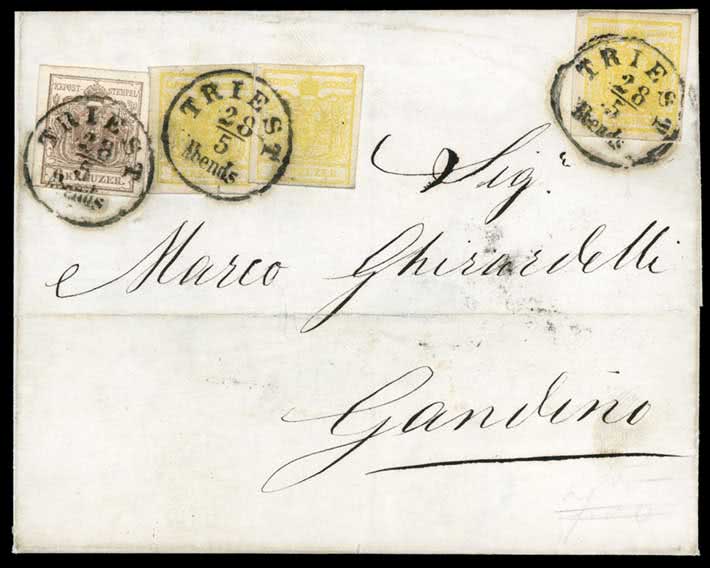 KKPOST-STEMPEL
KREUZER
KREUZER
TRIEST
28
5
Abends
TRIEST
28
5
Abends
TRIEST
28
5
Abends
Sigr
Marco Ghirardelli
Gandino